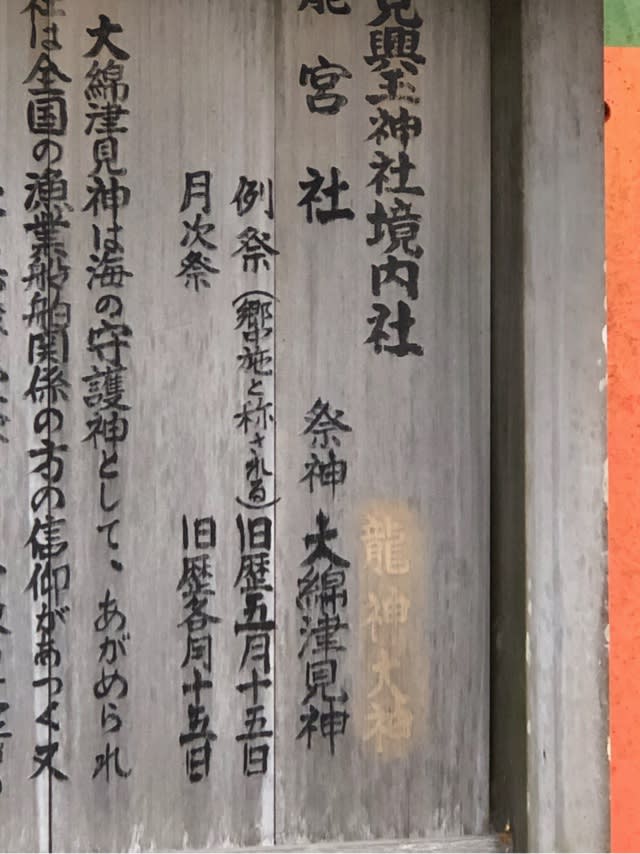 見興玉神社境内社
龍神大神
龍宮社 祭神 大綿津見神
例祭(郷中施と称される)旧暦五月十五日
月次祭 旧暦各月十五日
大綿津見神は海の守護神として、あがめられ
社は全国の漁業船舶関係の方の信仰があつく又